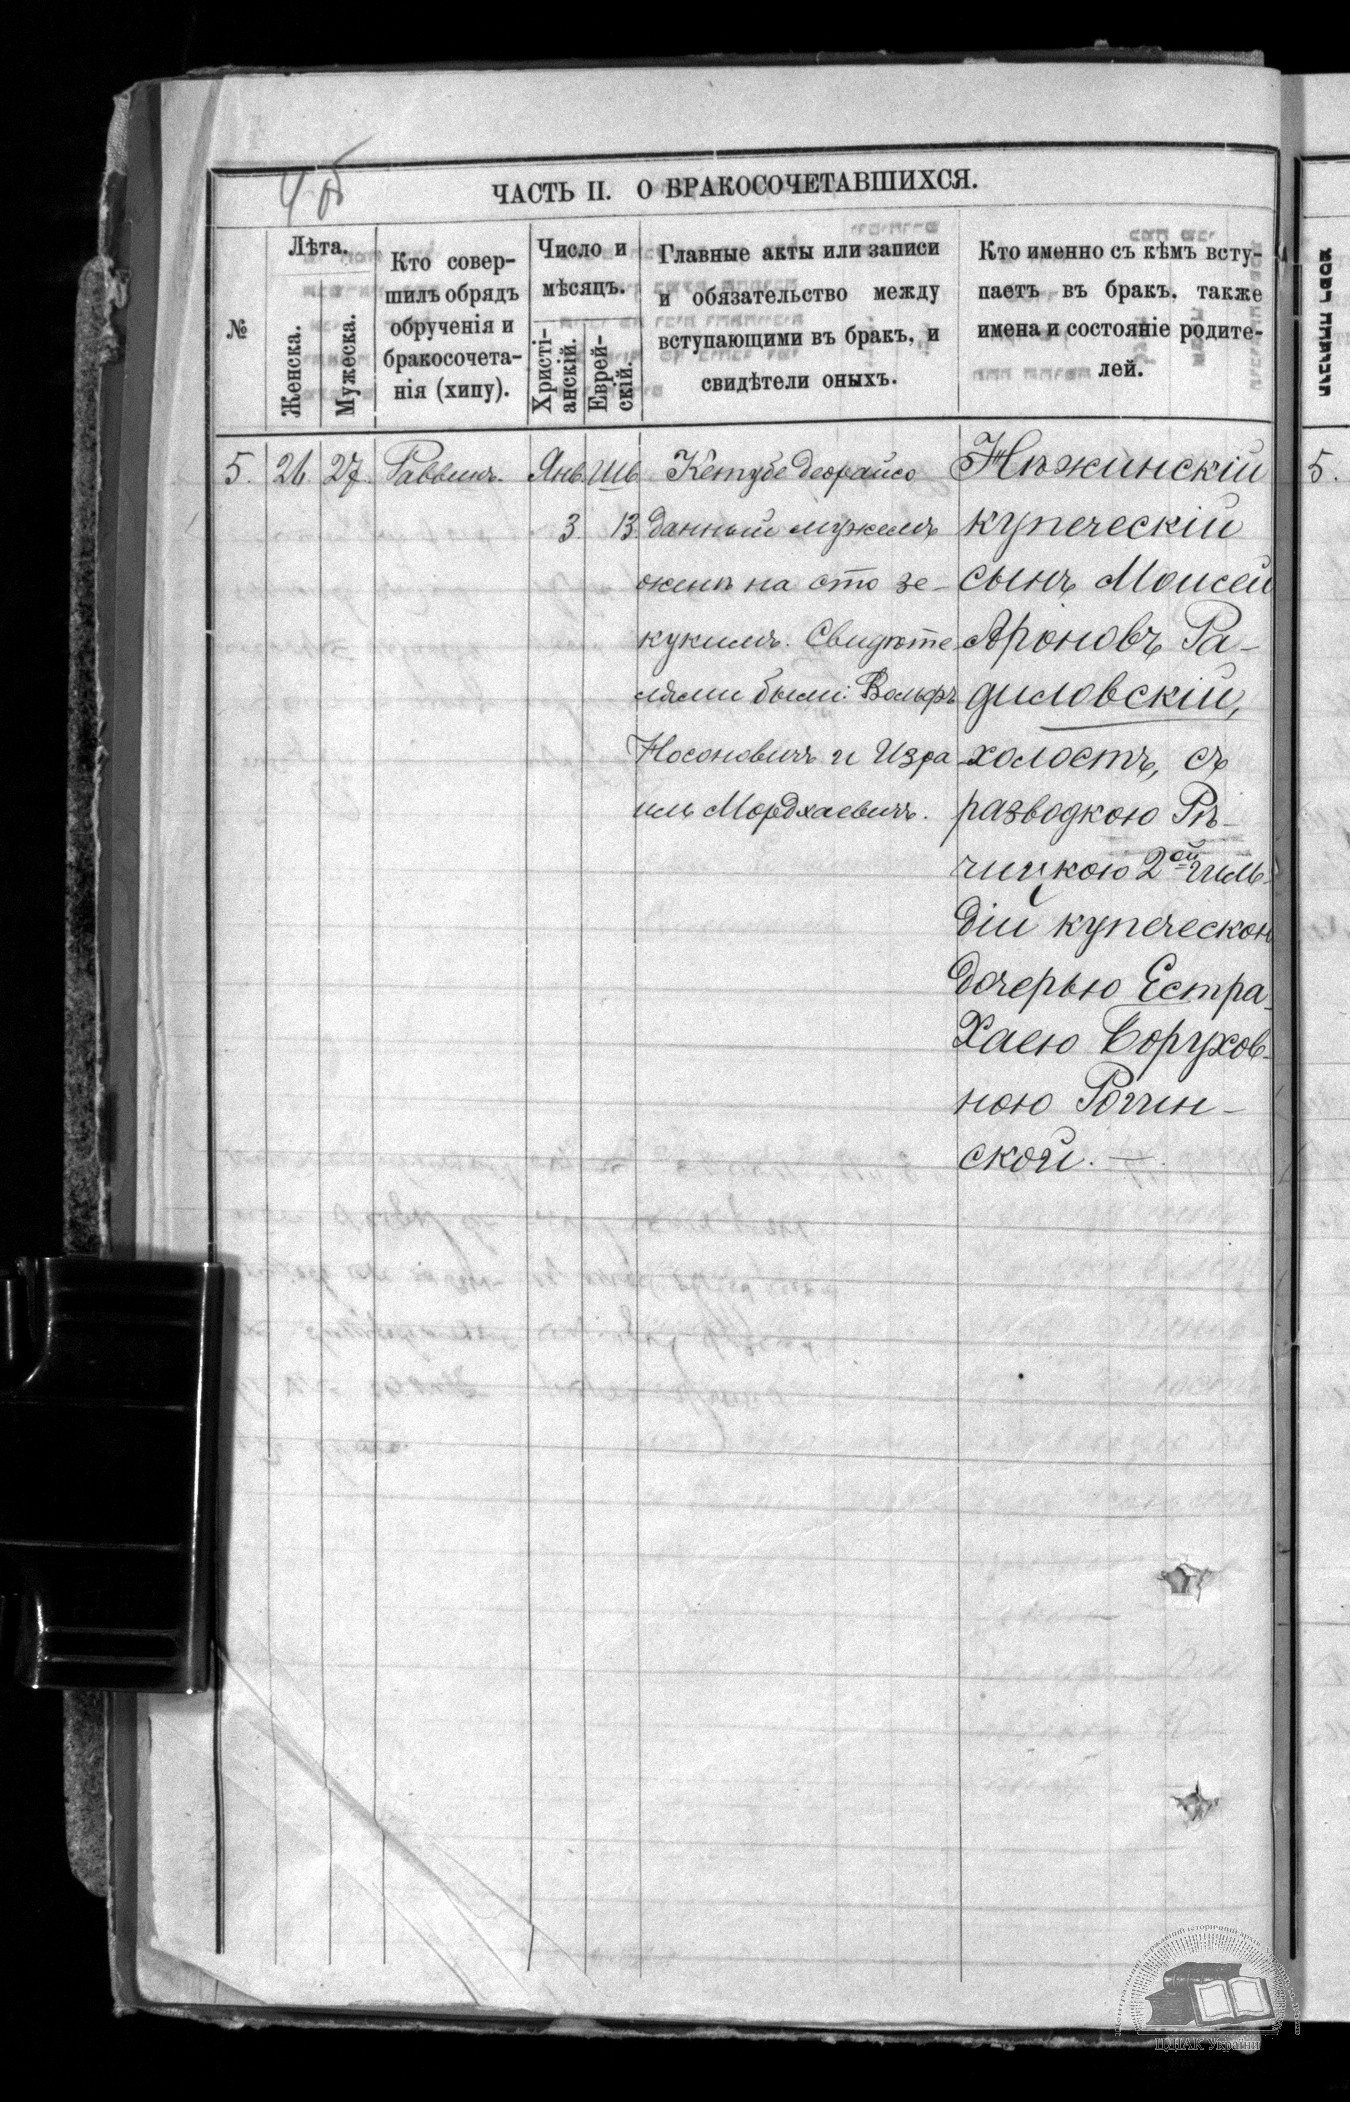 ЧАСТЬ II. О БРАКОСОЧЕТАВШИХСЯ.
№
Лѣта.
Женска.
Мужеска.
Кто совер-
шилъ обрядъ
обрученія и
бракосочета-
нія (хипу).
Число и
мѣсяцъ.
Христі-
анскій.
Еврей-
скій.
Главные акты или записи
и обязательство между
вступающими въ бракъ, и
свидѣтели оныхъ.
Кто именно съ кѣмъ всту-
паетъ въ бракъ, также
имена и состояніе родите-
лей.
5. 26. 27. Раввинъ. Янв. Шв.
3. 13.
Кетубе деорайсо
данный мужемъ
женѣ на сто зе-
кукимъ. Свидѣте-
лями были: Вольфъ
Носоновичъ и Изра
иль Мордхаевичъ.
Нѣжинскій
купеческій
сынъ Моисей
Ароновъ Ра-
диловскій,
холостъ, съ
разводкою Рѣ-
чицкою 2ой гиль-
дій купеческой
дочерью Естра-
Хаею Борухов-
ною Рогин-
ской. —
5.
ЦДІАК України